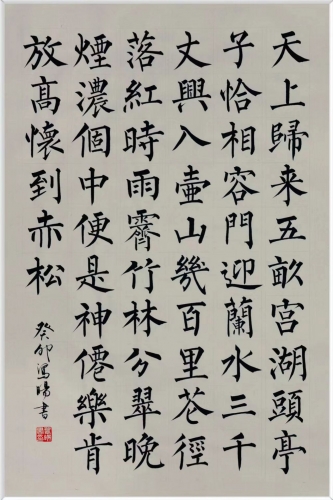 天上歸来五畝宫湖頭亭
子恰相容門迎蘭水三千
丈興入壺山幾百里花徑
落紅時雨霽竹林分翠晚
煙濃個中便是神僊樂肯
放高懷到赤松
癸卯書